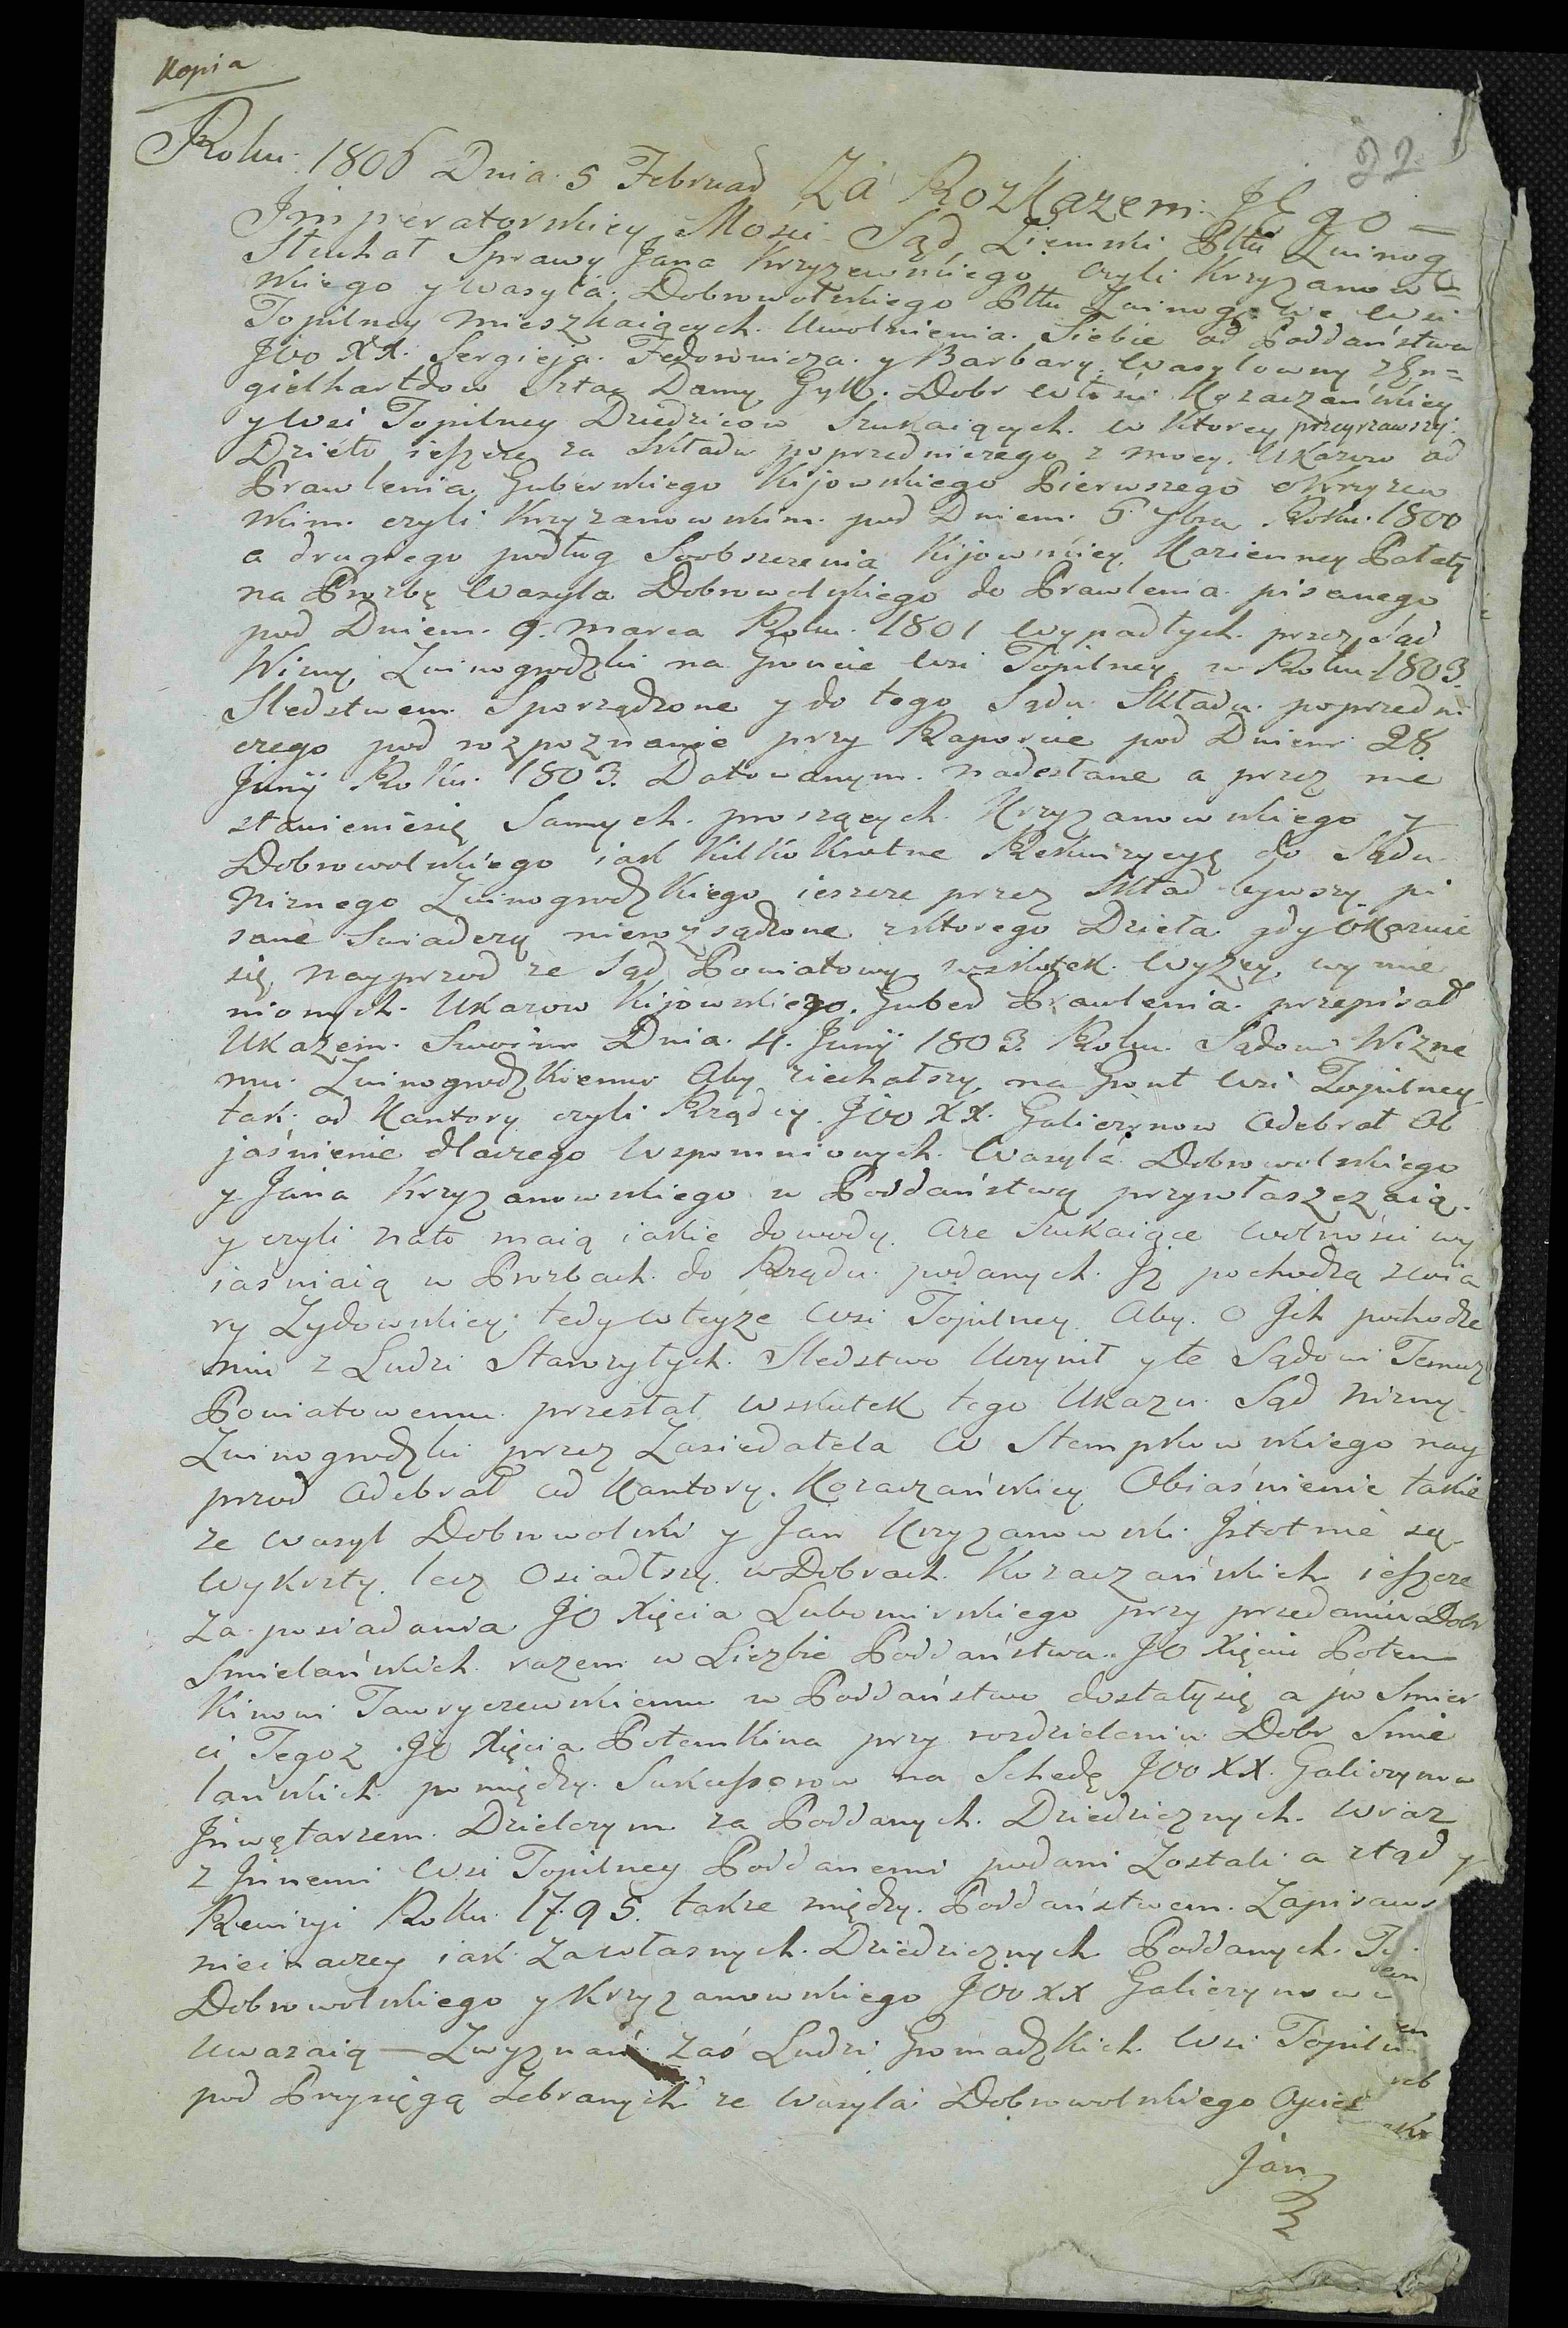 Kopia
22
Roku 1806 Dnia 5 Februar Za Rozkazem JEgo —
Imperatorskiey Mości Sąd Ziemski Pttu Zwinog
Słuchał Sprawy Jana Krzyzewskiego czyli Krzyzanow=
skiego y Wasyla Dobrowolskiego Pttu Zwinog: we Wsi
Topilney mieszkaiących Uwolnienia Siebie od Poddaństwa
JOO XX. Sergieja Fedorowicza y Barbary Wasylowny z En=
gielhartdow Damy Dobr Włości Kozaczańskiey
y Wsi Topilney Dziedzicow Szukaiących w Ktorey przeyrzawszy
Dzieło ieszcze za Składu poprzedniczego z mocy Ukazow od
Prawlenia Guberskiego Kijowskiego Pierwszego o Krzyzew
skim czyli Krzyzanowskim pod Dniem 6 7bra Roku 1800
a drugiego podług Soobszczenia Kijowskiey Kazienney Pałaty
na Prozbę Wasyla Dobrowolskiego do Prawlenia pisanego
pod Dniem 9 marca Roku 1801 wypadłych przez Sąd
Nizny Zwinogrodzki na Gruncie Wsi Topilney w Roku 1803
Sledztwem Sporządzone y do tego Sądu Składu poprzedni
czego pod rozpoznanie przy Raporcie pod Dniem 28
Junij Roku 1803. Datowanym nadesłane a przez nie
stawieniesię Samych proszących Krzyzanowskiego y
Dobrowolskiego iak Kilkokrotne Rekwizycyę do Sądu
Niznego Zwinogrodzkiego ieszcze przez Skład bywszy pi
sane Swiadczą nierozsądzone z ktorego Dzieła gdy Okazuie
się nayprzod ze Sąd Powiatowy wskutek Wyzey wymie
nionych Ukazow Kijowskiego Guber Prawlenia przepisał
Ukazem Swoim Dnia 4 Junij 1803 Roku Sądowi Nizne
mu Zwinogrodzkiemu Aby ziechałszy na Grunt Wsi Topilney
tak od Kantory czyli Rządcy JOO XX. Galiczynow Odebrał Ob
jaśnienie dlaczego Wspomnionych Wasyla Dobrowolskiego
y Jana Krzyzanowskiego w Poddaństwą przywłaszczaią
y czyli nato maią iakie dowody Aze Szukaiące wolności wy
iaśniaią w Prozbach do Rządu podanych Jż pochodzą zwia
ry Zydowskiey tedy wteyże Wsi Topilney Aby O Jch pochodze
niu z Ludzi Starozytych Sledztwo Uczynił y te Sądowi Temuz
Powiatowemu przesłał wskutek tego Ukazu Sąd Nizny
Zwinogrodzki przez Zasiedatela W Stempkowskiego nay
przod Odebrał od Kantory Kozaczańskiey Obiaśnienie takie
ze Wasyl Dobrowolski y Jan Krzyzanowski Jstotnie są
Wykrzty lecz Osiadłszy w Dobrach Kozaczańskich ieszcze
Za posiadania JO Xięcia Lubomirskiego przy przedaniu Dobr
Smielańskich razem w Liczbie Poddaństwa JO Xięciu Potem
kinowi Tawryczewskiemu w Poddaństwo dostałysię a po Smier
ci Tegoz JO Xięcia Potemkina przy rozdzieleniu Dobr Smie
lańskich pomiędzy Sukcessorow na Schedę JOO XX. Galiczynow
Jnwętarzem Dzielczym za Poddanych Dziedzicznych wraz
z Jnnemi Wsi Topilney Poddanemi podani Zostali a ztąd y
Rewizyi Roku 1795 takze między Poddaństwem Zapisaws
nieinaczey iak Zawłasnych Dziedzicznych Poddanych
Dobrowolskiego y Krzyzanowskiego JOO XX Galiczynowe
Uwazaią — Zwyznań zaś Ludzi Gromadzkich Wsi Topiln
pod Przysięgą Zebranych ze Wasyla Dobrowolskiego Oyciec
Jan